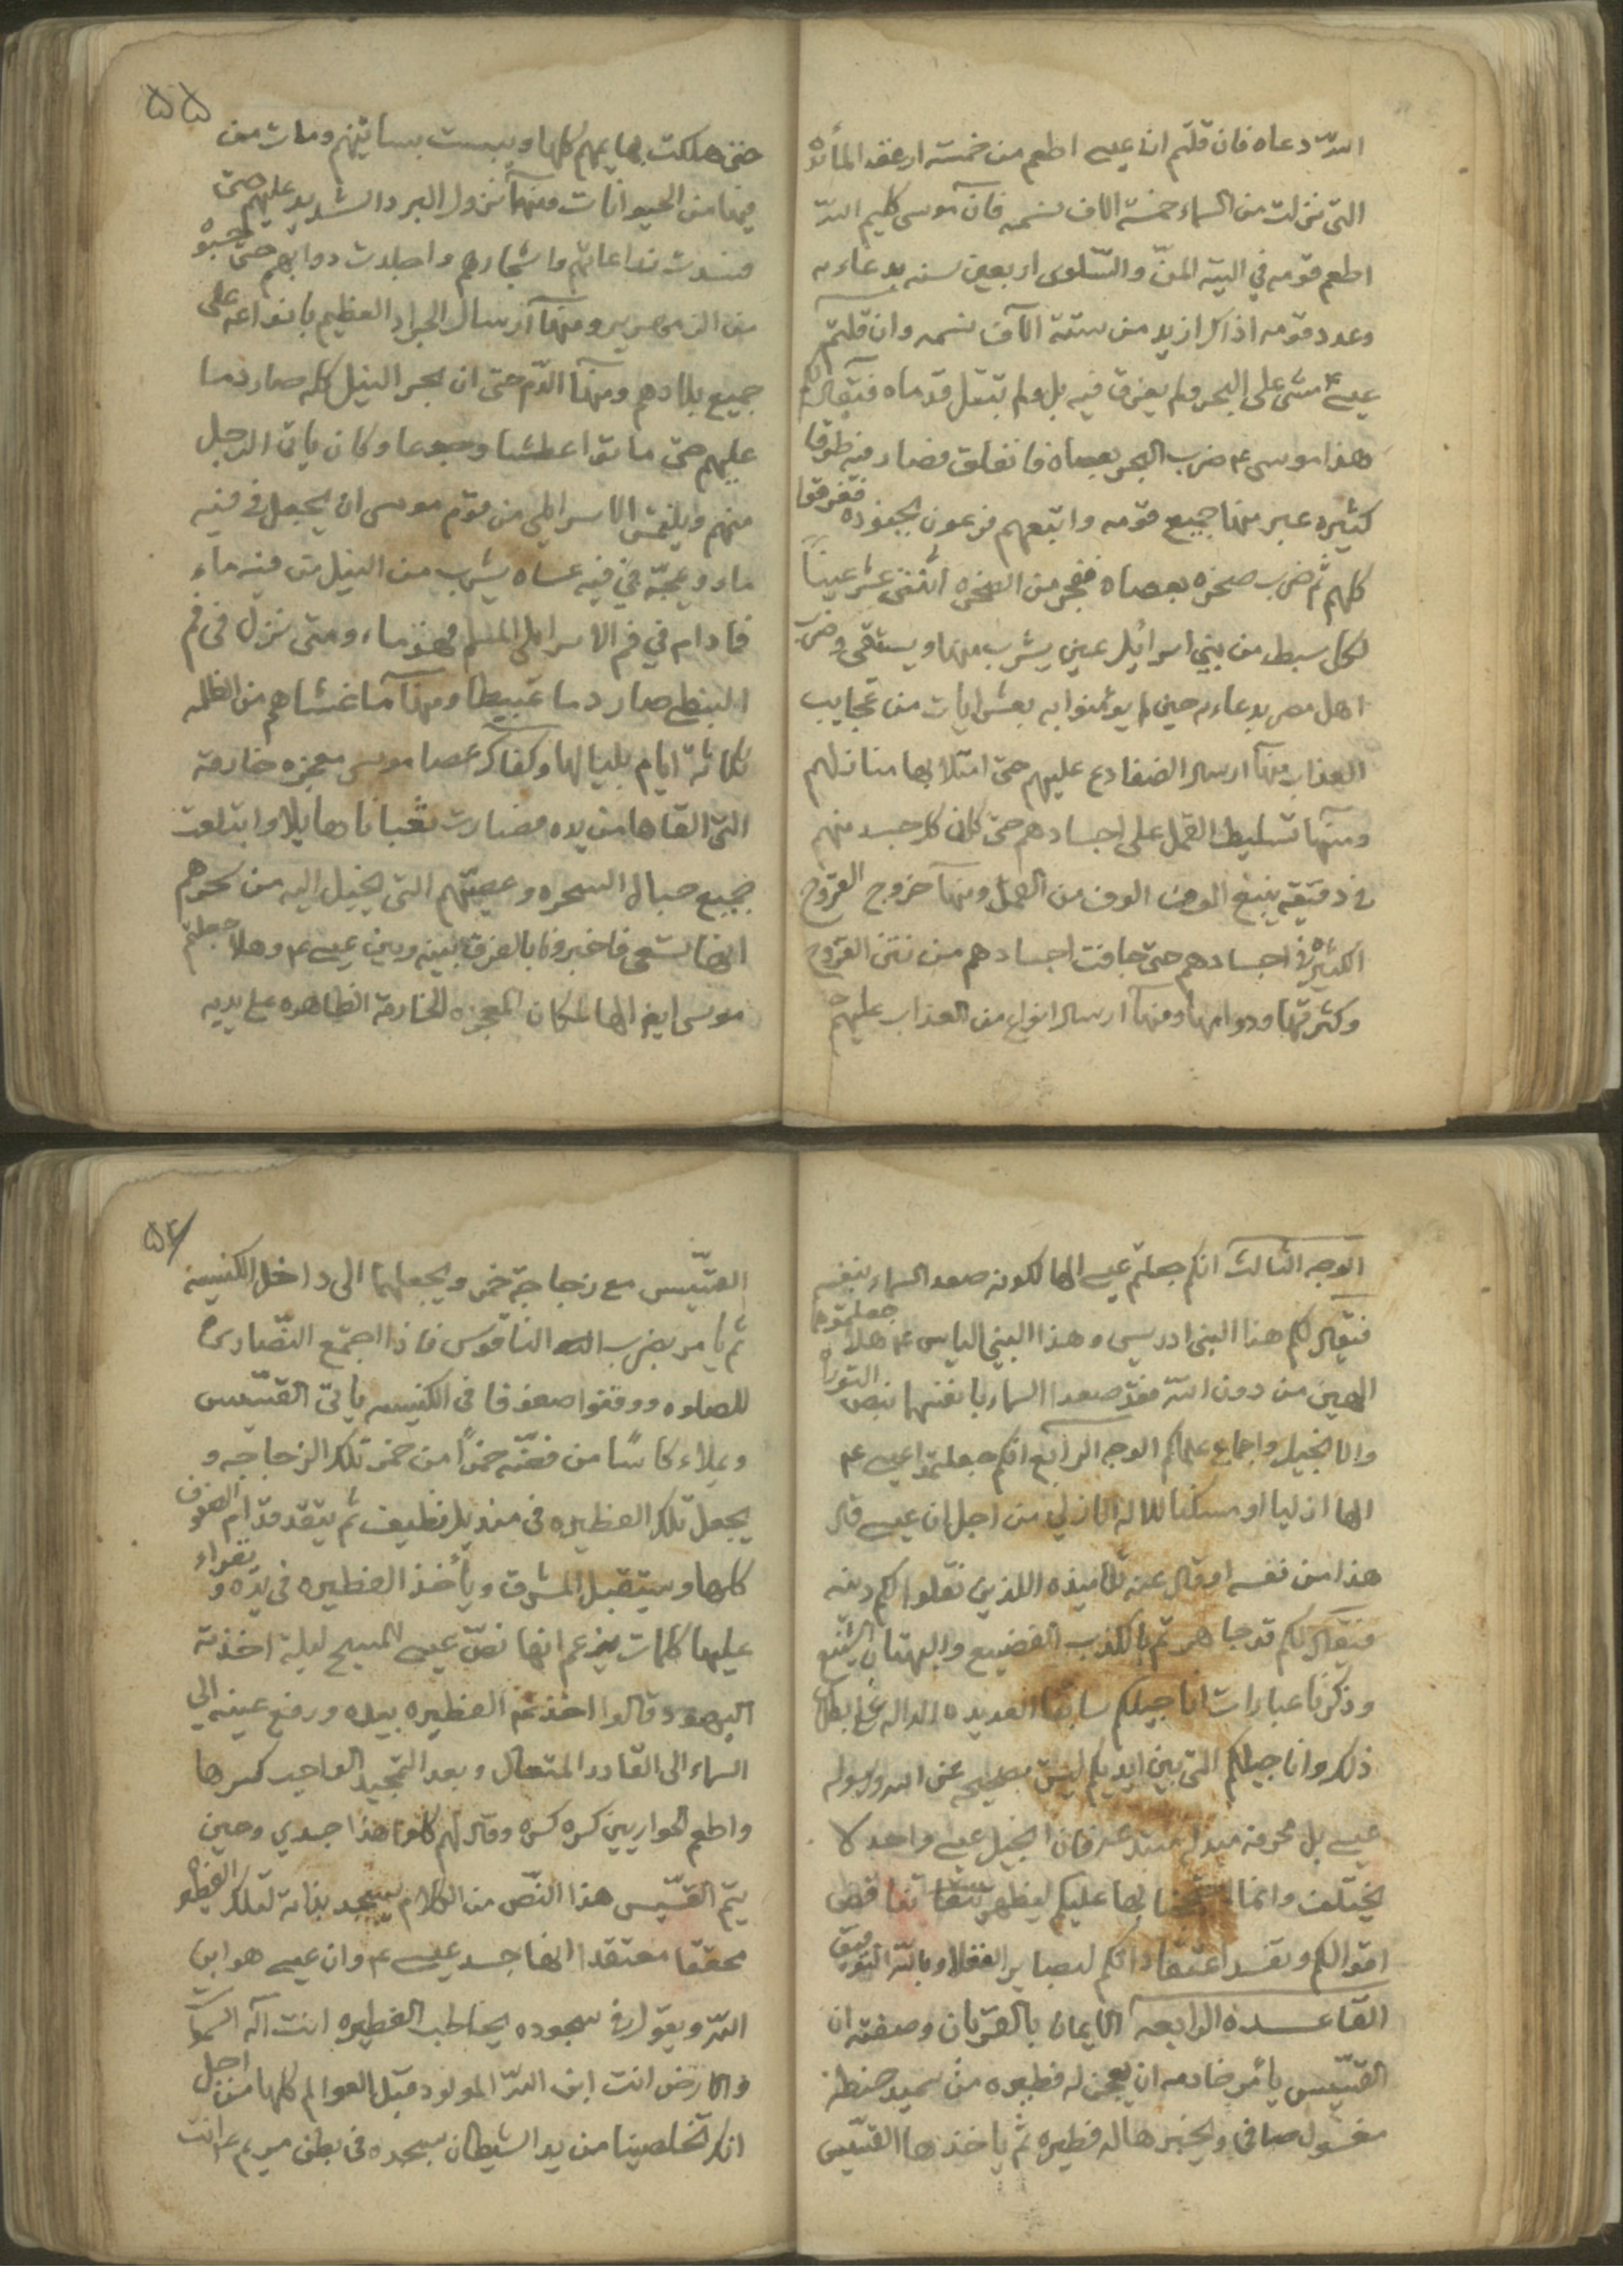 اللّه دعاه فان قلتم ان عيسى اطعم من خمسة ارغفه المأئده
التى نزلت من السماء خمسة الاف نسمه فان موسى كليم اللّه
اطعم قومه في التيه المنّ والسّلوى اربعين سنه بدعاءه
وعدد قومه اذاك ازيد من ستة الآف نسمه وان قلتم
عيسى ع مشى على البحر ولم يغرق فيه بل ولم تبتل قدماه فيقال لكم
هذا موسى ع ضرب البحر بعصاه فانفلق فصار فيه طرقا
كثيره عبر منها جميع قومه واتبعهم فرعون بجنوده فغرقوا
كلهم ثم ضرب صخره بعصاه ففجر من الصخره اثنتى عشر عينًا
لكل سبط من بني اسرائيل عين يشرب منها ويستقى وضرب
اهل مصر بدعاءه حين لم يؤمنوا به بعشر ايات من عجايب
العذاب منها ارسال الضفادع عليهم حتى امتلا بها منازلهم
ومنها تسليط القمل على اجسادهم حتى كان كل جسد منهم
فى دقيقه ينبع الوف الوف من القمل ومنها خروج القروح
الكثيره فى اجسادهم حتى جافت اجسادهم من نتن القروح
وكثرتها ودوامها ومنها ارسال انواع من العذاب عليهم
٥٥
حتى هلكت بهايمهم كلها ويبست بساتينهم ومات من
فيها من الحيوانات ومنها نزول البرد الشديد عليهم حتى
فسدت زراعاتهم واشجارهم واجلدت دوابهم حتى
من الزمهرير ومنها ارسال الجراد العظيم بانواعه على
جميع بلادهم ومنها الدّم حتى ان بحر النيل كله صار دما
عليهم حتى ماتوا عطشا وجوعا وكان ياتى الرجل
منهم ويلتمس الاسرايلي من قوم موسى ان يجعل فى فيه
ماء ويمجّه في فيه عساه يشرب من النيل من فيه ماء
فما دام في فم الاسرايلى المسلم فهو ماء ومتى نزل فى فم
القبطى صار دما عبيطا ومنها ما غشاهم من الظلمه
ثلاثة ايام بلياليها وكفاك عصا موسى معجزه خارقة
التى القاها من يده فصارت ثعبانا هايلا وابتلعت
جميع حبال السحره وعصيّهم التى يخيل اليه من سحرهم
انها تسعى فاخبرونا بالفرق بينه وبين عيسى ع وهلا جعلتم
موسى ايضا الها لمكان المعجزه الخارقة الظاهره على يديه
الوجه الثالث انكم جعلتم عيسى الها لكونه صعد السماء بنفسه
فيقال لكم هذا النبى ادريس وهذا النبي الياس ع هلا جعلتموهما
الهين من دون اللّه فقد صعدا السماء بانفسهما بنص التوراة
والانجيل واجماع علمائكم الوجه الرابع انكم جعلتم عيسى ع
الها ازليا او مسكنا للاله الازلي من اجل ان عيسى قال
هذا من نفسه او قال عنه تلاميذه اللذين نقلوا لكم دينه
فيقال لكم قد جاهرتم بالكذب الفضيع والبهتان الشنيع
وذكرنا عبارات اناجيلكم سابقا العديده الداله على ابطال
ذلك واناجيلكم التى بين ايديكم ليست بصحيحه عن اللّه ورسوله
عيسى بل محرفه مبدله فان انجيل عيسى واحد لا
يختلف وانما بها عليكم ليظهر تناقض
اقوالكم ويفسد اعتقاداتكم لبصاير العقلا وباللّه التوفيق
القاعــدة الرابعه الايمان بالقربان وصفته ان
القسّيس يأمر خادمه ان يعجن له فطيره من سميد حنطة
مغسول صافى ويخبزها له فطيره ثم ياخذها القسّيس
٥٤
القسّيس مع زجاجة خمر ويجعلهما الى داخل الكنيسه
ثم يامر بضرب الناقوس فاذا اجتمع النّصارى
للصلوه ووقفوا صفوفا فى الكنيسه ياتى القسّيس
ويملاء كاسًا من فضّه خمرًا من خمر تلك الزجاجه و
يجعل تلك الفطيره فى منديل نظيف ثم يتقدّم قدّام الصفوف
كلها ويستقبل المشرق ويأخذ الفطيره فى يده ويقراء
عليها كلمات يزعم انها نصّ عيسى المسيح ليلة اخذته
اليهود وقالوا اخذ الفطيره بيده ورفع عينه الى
السماء الى القادر المتعال وبعد التمجيد الواجب كسرها
واطعم الحواريين كسره كسره وقال لهم كلوا هذا جسدي وحين
يتم القسّيس هذا النّص من الكلام يسجد بذاته لتلك الفطيره
محققا معتقدا انها جسد عيسى ع وان عيسى هو ابن
اللّه ويقول فى سجوده يخاطب الفطيره انت اله السموات
والارض انت ابن اللّه المولود قبل العوالم كلها من اجل
انك تخلصينا من يد الشيطان فى بطن مريم انت